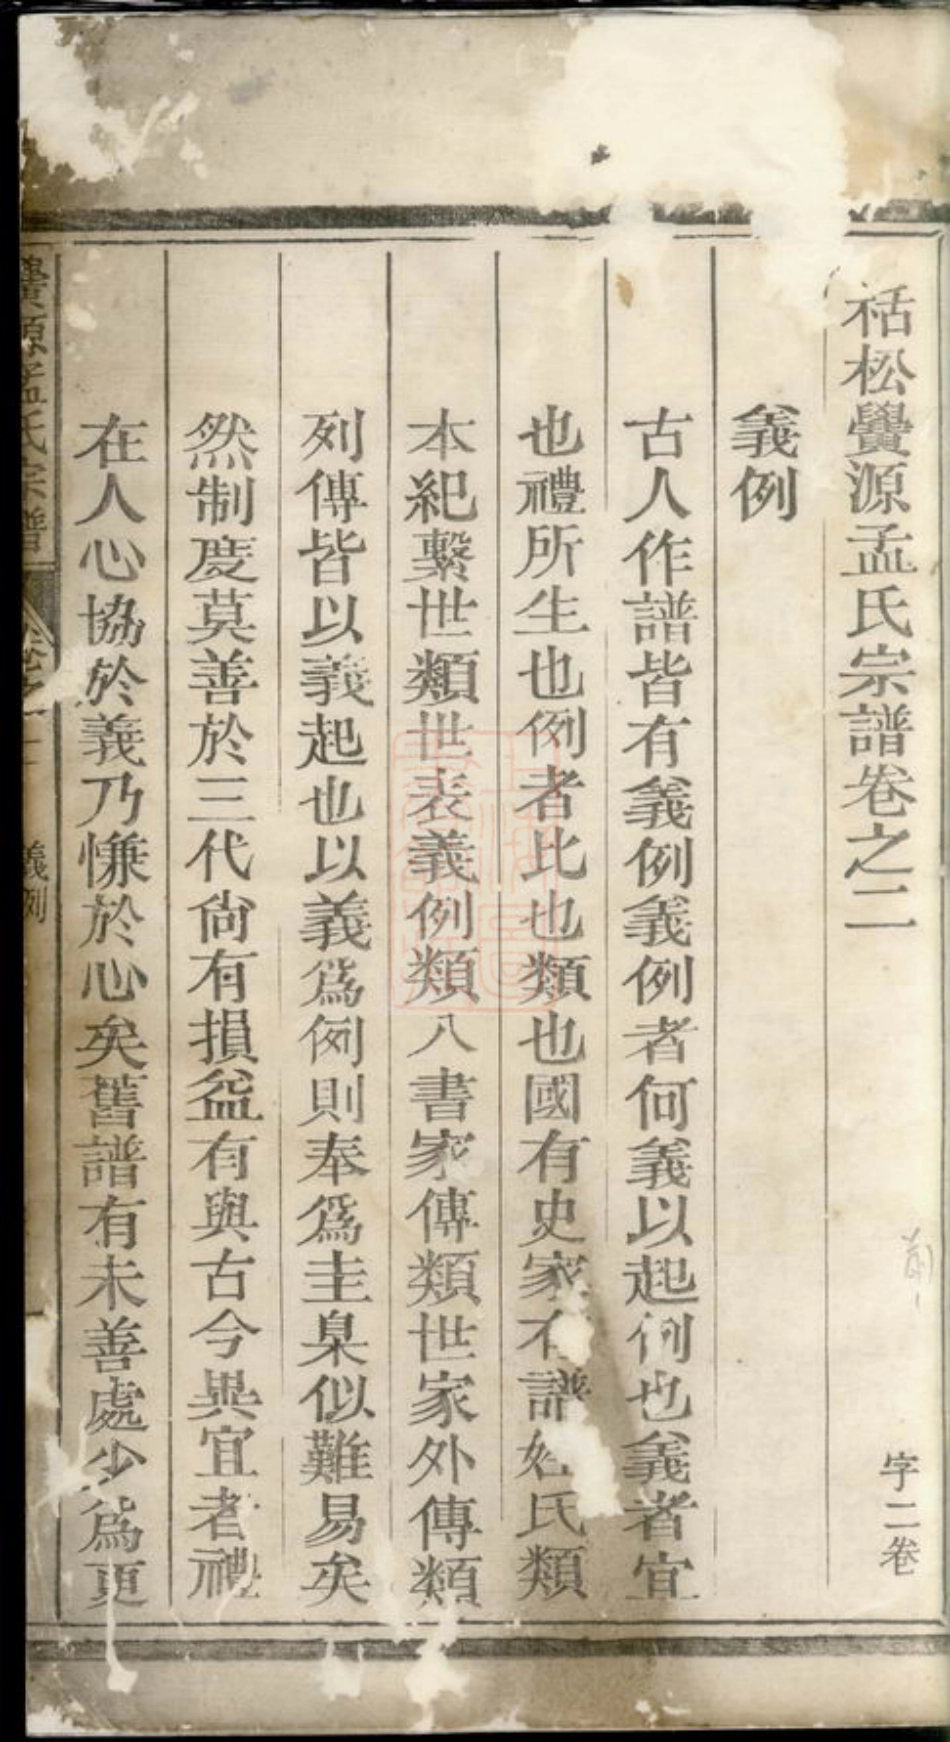 祜松黌源孟氏宗譜卷之二
字二卷
義例
古人作譜皆有義例義例者何義以起例也義者宜
也禮所生也例者比也類也國有史家有譜姓氏類
本紀繫世類世表義例類八書家傳類世家外傳類
列傳皆以義起也以義爲例則奉爲圭臬似難易矣
然制度莫善於三代尙有損益有與古今異宜者禮
在人心協於義乃慊於心矣舊譜有未善處少爲更
黌源孟氏宗譜 卷之二 義例